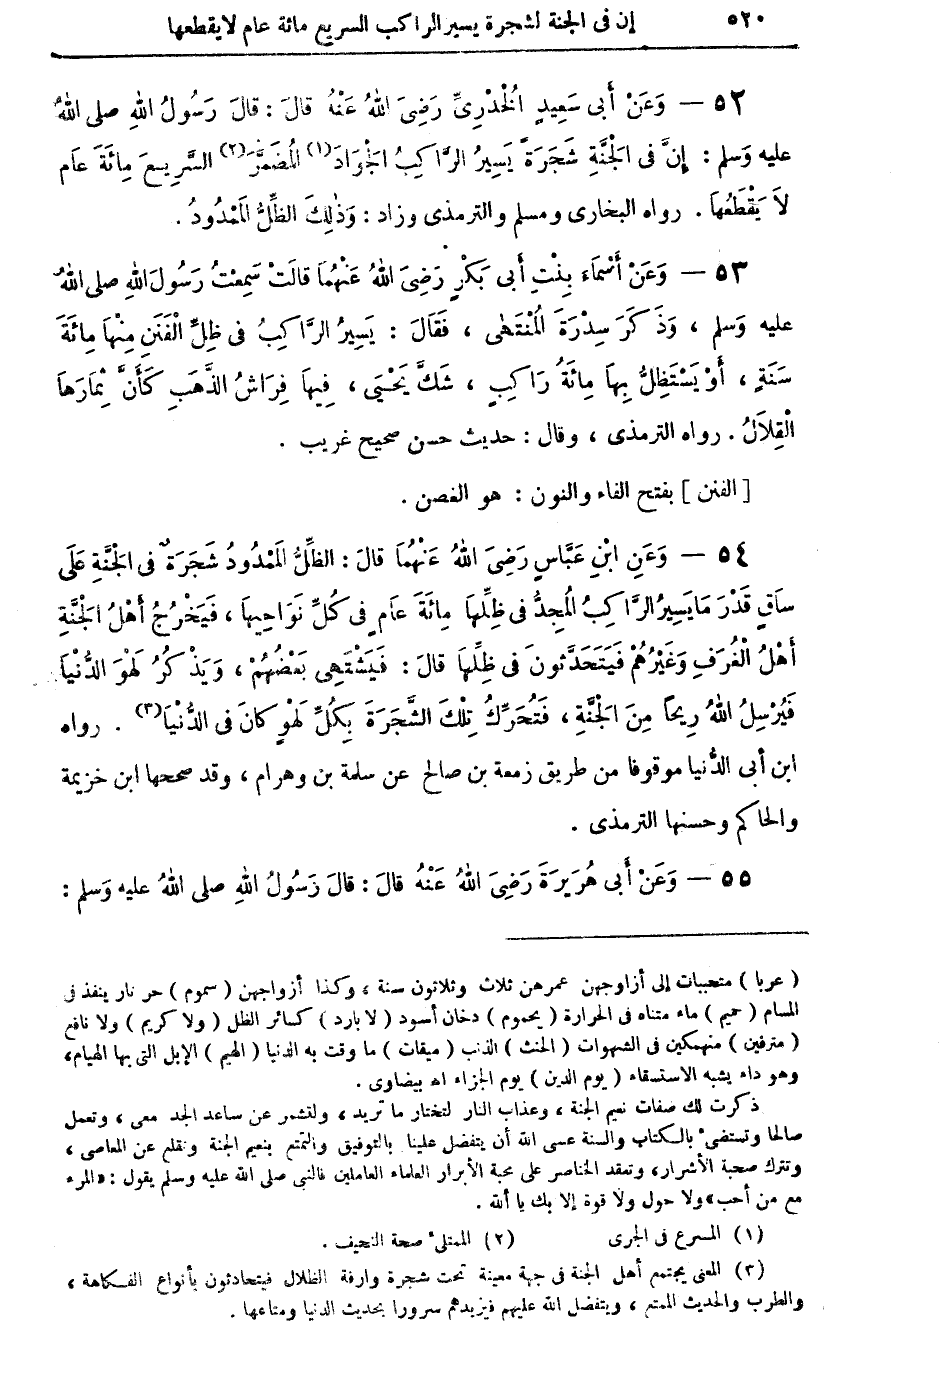 ٥٢٠ إن فى الجنة لشجرة يسير الراكب السريع مائة عام لا يقطعها
٥٢ — وَعَنْ أَبى سَعِيدٍ الْخُدْرِىِّ رَضِىَ اللهُ عَنْهُ قالَ : قالَ رَسُولُ اللهِ صلى اللهُ
عليه وَسلم : إِنَّ فى الْجَنَّةِ شَجَرَةً يَسِيرُ الرَّاكِبُ الْجَوَادَ(١) الْمُضَمَّرَ(٢) السَّرِيعَ مِائَةَ عَام
لاَ يَقْطَعُها . رواه البخارى ومسلم والترمذى وزاد : وَذلِكَ الظِّلُّ الْمَمْدُودُ .
٥٣ — وَعَنْ أَسْمَاء بِنْتِ أَبى بَكْرٍ رَضِىَ اللهُ عَنْهُمَا قالَتْ سَمِعْتُ رَسُولَ اللهِ صلى اللهُ
عليه وَسلم ، وَذَ كَرَ سِدْرَةَ الْمُنْتَهٰى ، فَقَالَ : يَسِيرُ الرَّاكِبُ فى ظِلِّ الْفَنَنِ مِنْهَا مِائَةَ
سَنَةٍ ، أَوْ يَسْتَظِلُّ بِهاَ مِائَةُ رَاكِبٍ ، شَكَّ يَحْيَى ، فِيهاَ فِرَاشُ الذَّهَبِ كَأَنَّ ثِمَارَهاَ
الْقِلاَلُ . رواه الترمذى ، وقال : حديث حسن صحيح غريب .
[ الفنن ] بفتح الفاء والنون : هو الغصن .
٥٤ — وَعَنِ ابْنِ عَبَّاسٍ رَضِىَ اللهُ عَنْهُمَا قالَ : الظِّلُّ الْمَمْدُودُ شَجَرَةٌ فى الْجَنَّةِ عَلَى
ساَقٍ قَدْرَ مَا يَسِيرُ الرَّاكِبُ الْمُجِدُّ فى ظِلِّهاَ مِائَةَ عَامٍ فى كُلِّ نَوَاحِيهاَ ، فَيَخْرُجُ أَهْلُ الْجَنَّةِ
أَهْلُ الْغُرَفِ وَغَيْرُهُمْ فَيَتَحَدَّثُونَ فى ظِلِّهاَ قالَ : فَيَشْتَهِى بَعْضُهُمْ ، وَيَذْ كُرُ لَهْوَ الدُّنْياَ
فَيُرْسِلُ اللهُ رِيحًا مِنَ الْجَنَّةِ ، فَتُحَرِّكُ تِلْكَ الشَّجَرَةَ بِكُلِّ لَهْوٍ كانَ فى الدُّنْياَ(٣) . رواه
ابن أبى الدُّنيا موقوفا من طريق زمعة بن صالح عن سلمة بن وهرام ، وقد صححها ابن خزيمة
والحاكم وحسنها الترمذى .
٥٥ — وَعَنْ أَبى هُرَيرَةَ رَضِىَ اللهُ عَنْهُ قالَ : قالَ رَسُولُ اللهِ صلى اللهُ عليه وَسلم :
( عربا ) متحببات إلى أزاوجهن عمرهن ثلاث وثلاثون سنة ، وكذا أزواجهن ( سموم ) حر نار ينفذ فى
المسام ( حميم ) ماء متناه فى الحرارة ( يحموم ) دخان أسود ( لا بارد ) كسائر الظل ( ولا كريم ) ولا نافع
( مترفين ) منهمكين فى الشهوات ( الحنث ) الذنب ( ميقات ) ما وقت به الدنيا ( الهيم ) الإبل التى بها الهيام،
وهو داء يشبه الاستسقاء ( يوم الدين ) يوم الجزاء اه بيضاوى .
ذكرت لك صفات نعيم الجنة ، وعذاب النار لتختار ما تريد ، ولتشمر عن ساعد الجد معى ، وتعمل
صالحا وتستضىء بالكتاب والسنة عسى الله أن يتفضل علينا بالتوفيق والتمتع بنعيم الجنة ونقلع عن المعاصى ،
وتترك صحبة الأشرار، وتعقد الخناصر على محبة الأبرار العلماء العاملين فالنبى صلى الله عليه وسلم يقول : «المرء
مع من أحب» ولا حول ولا قوة إلا بك يا ألله .
(١) المسرع فى الجرى (٢) الممتلىء صحة النحيف .
(٣) المعنى يجتمع أهل الجنة فى جهة معينة تحت شجرة وارفة الظلال فيتحادثون بأنواع الفكاهة ،
والطرب والحديث الممتع ، ويتفضل الله عليهم فيزيدهم سرورا بحديث الدنيا ومتاعها .